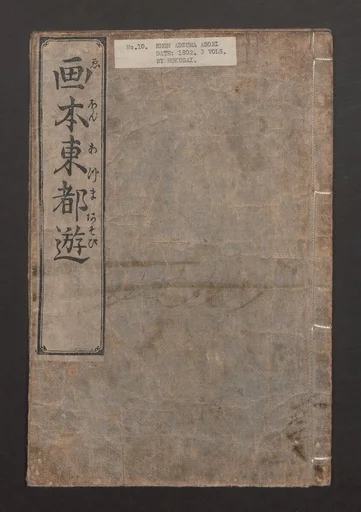 No.10. EHON ADZUMA ASOBI
DATE: 1802. 3 VOLS.
BY HOKUSAI.
画本東都遊
ゑほんあづまあそび